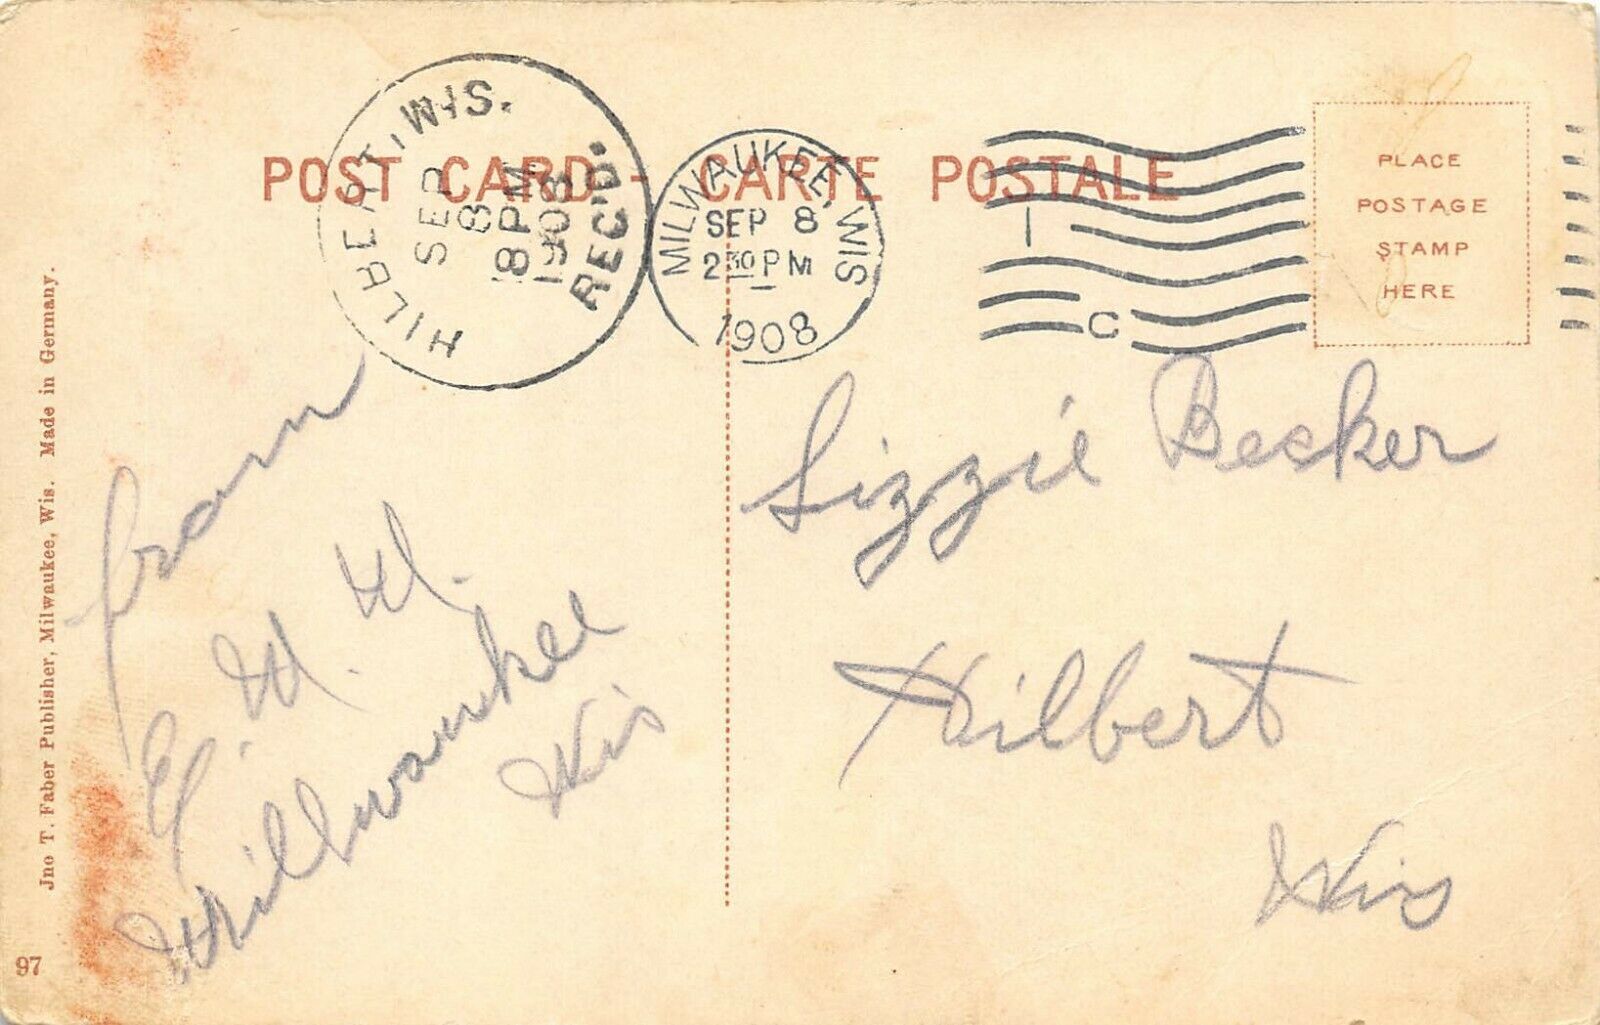 POST CARD - CARTE POSTALE
HILBERT, WIS.
SEP
8
8 PM
1908
REC'D.
MILWAUKEE, WIS
SEP 8
2 30 PM
1908
1
C
PLACE
POSTAGE
STAMP
HERE
from
Millwaukee
Wis
Lizzie Becker
Hilbert
Wis
Jno T. Faber Publisher, Milwaukee, Wis. Made in Germany.
97